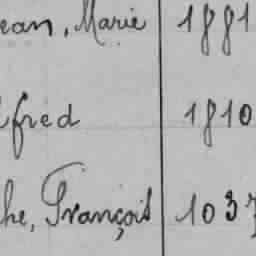 ean, Marie 1881
lfred 1810
he, François 1037